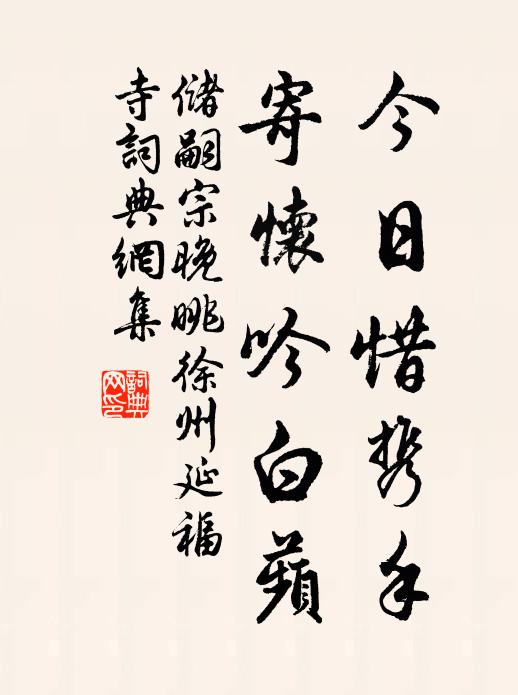 今日惜携手
寄懷吟白蘋
儲嗣宗晚眺徐州延福
寺詞典網集
詞典
网印